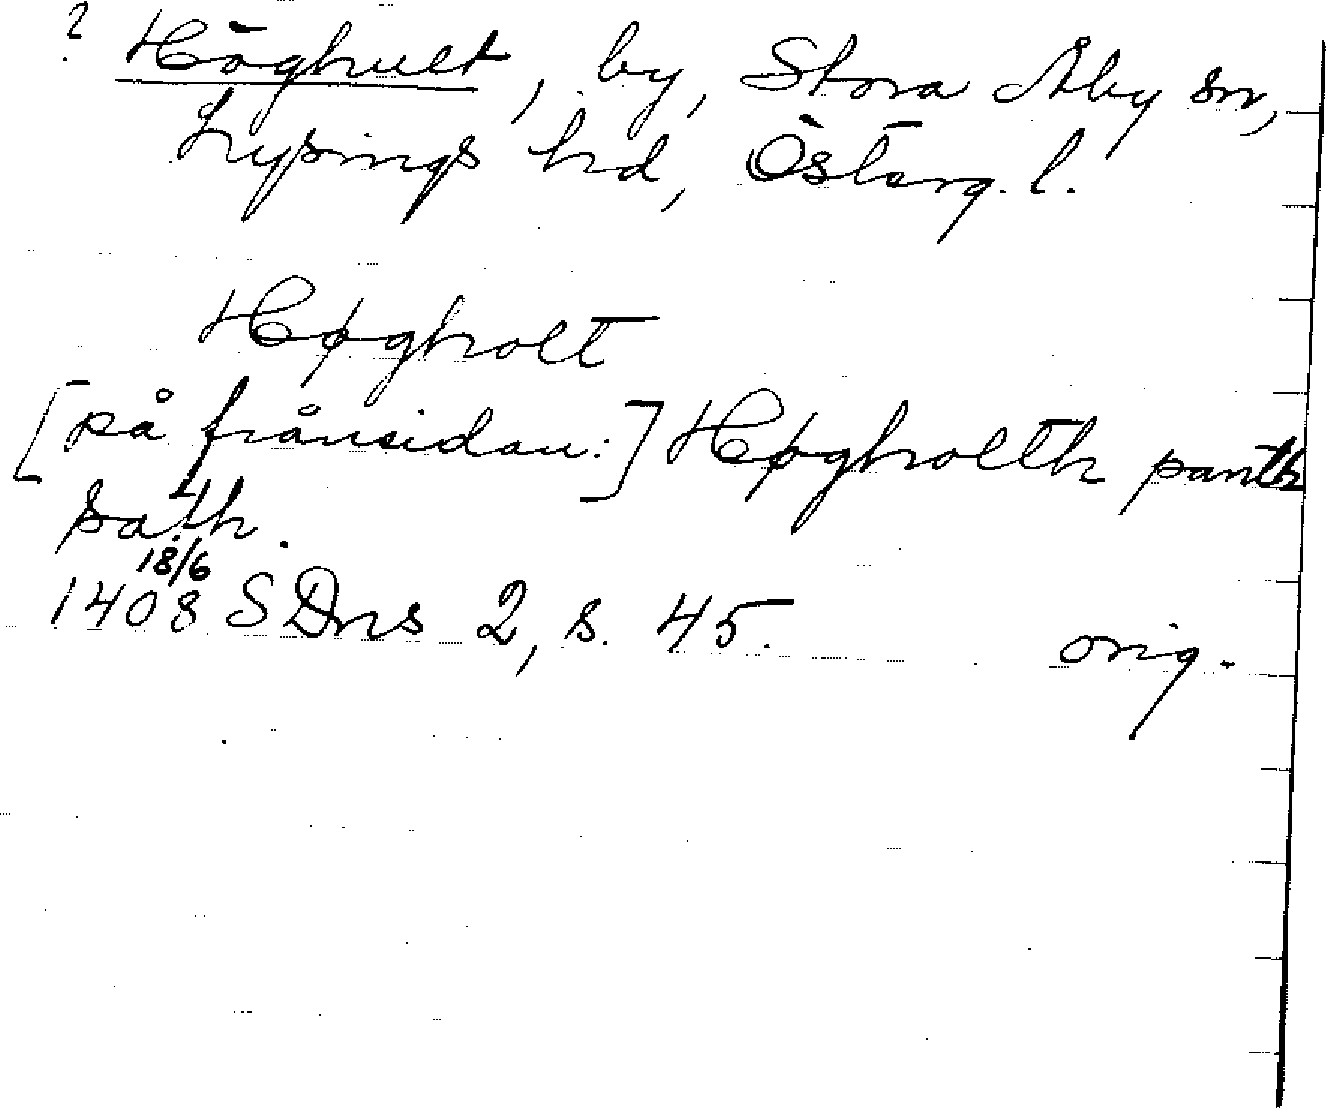 ? Höghult, by, Stora Åby sn,
Lysings hd, Österg. l.
Høgholt
[på frånsidan:] Høgholth panth
sath.
18/6
1408 SDns 2, s. 45. orig.